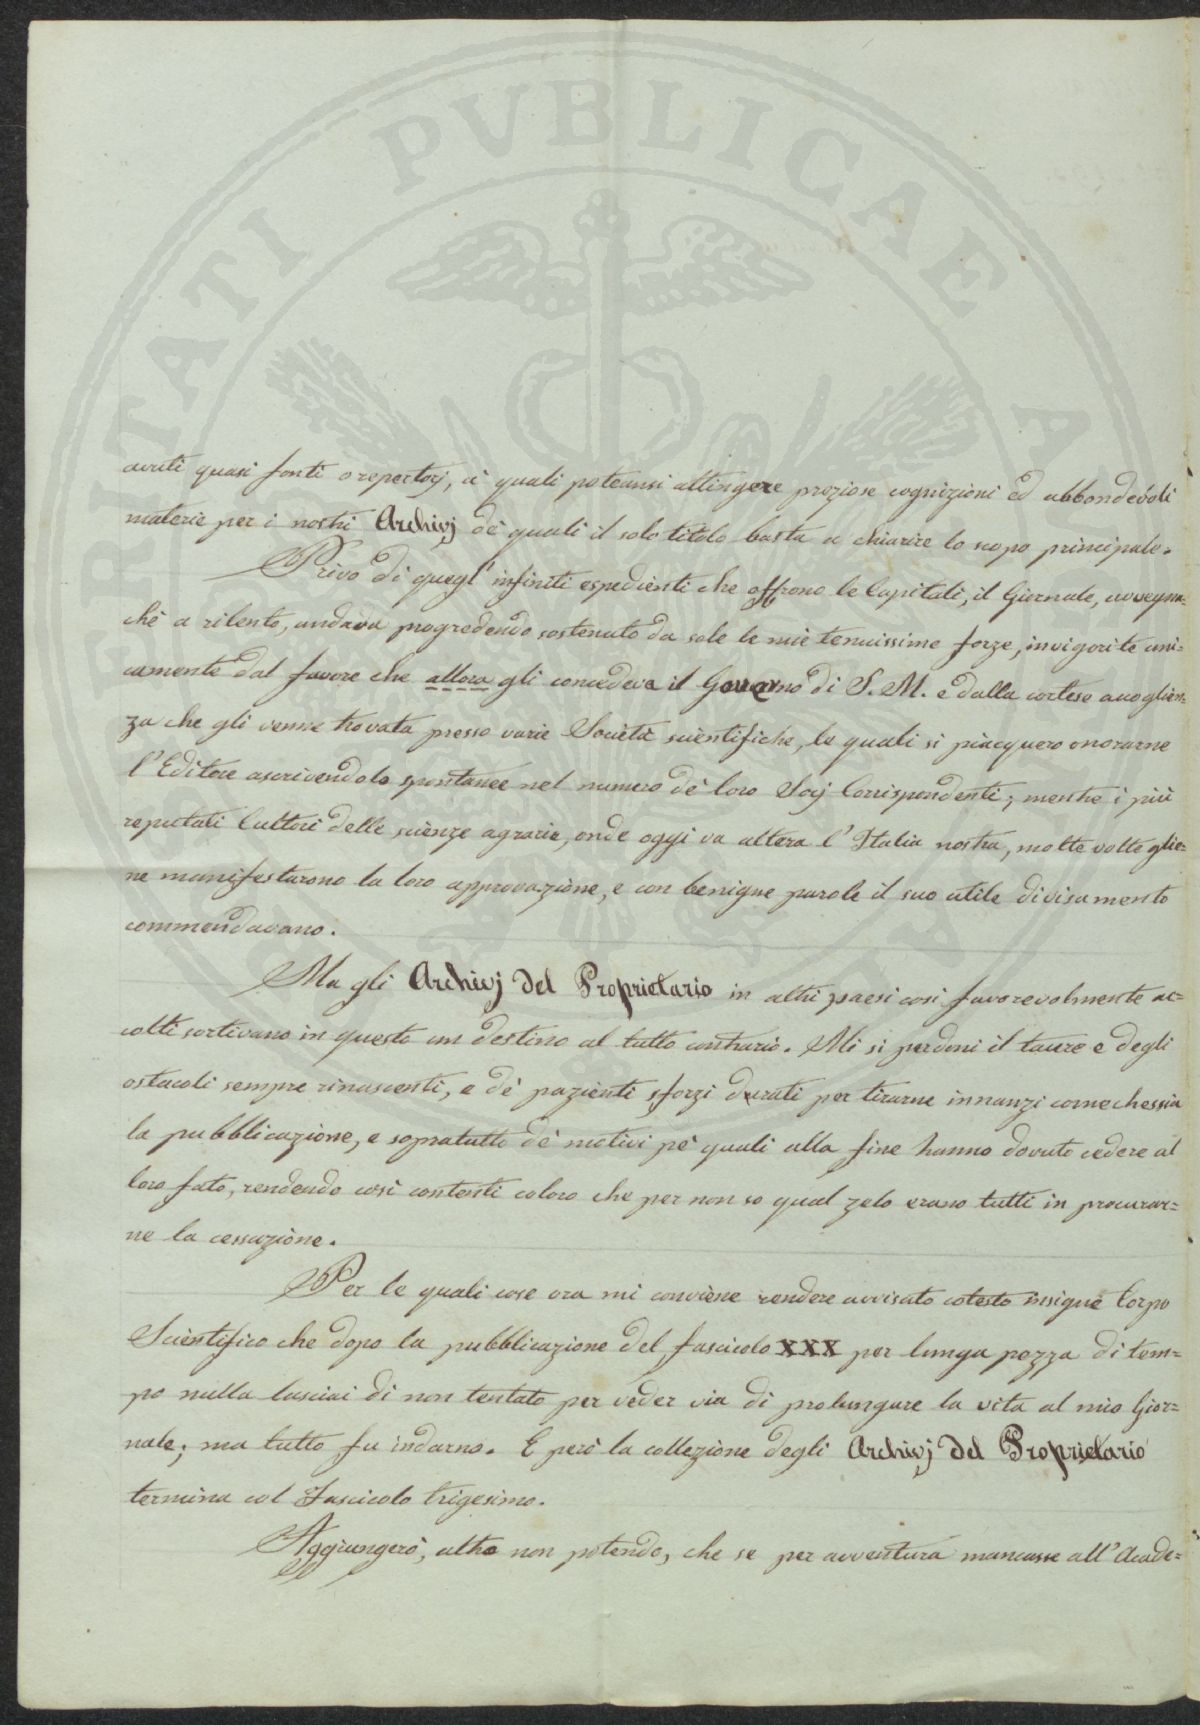 PUBLICAE
avuti quasi fonti o repertorj, a' quali poteansi attingere preziose cognizioni ed abbondevoli
materie per i nostri Archivj de' quali il solo titolo basta a chiarire lo scopo principale.
Privo di quegl' infiniti espedienti che offrono le Capitali, il Giornale, avvegna=
chè a rilento, andava progredendo sostenuto da sole le mie tenuissime forze, invigorite uni=
camente dal favore che allora gli concedeva il Governo di S. M. e dalla cortese accoglien=
za che gli venne trovata presso varie Società scientifiche, le quali si piacquero onorarne
l'Editore ascrivendolo spontanee nel numero de' loro Socj Corrispondenti; mentre i più
reputati Cultori delle scienze agrarie, onde oggi va altera l'Italia nostra, molte volte glie=
ne manifestarono la loro approvazione, e con benigne parole il suo utile divisamento
commendavano.
Ma gli Archivj del Proprietario in altri paesi così favorevolmente ac=
colti sortivano in questo un destino al tutto contrario. Mi si perdoni il tacere e degli
ostacoli sempre rinascenti, e de' pazienti sforzi durati per tirarne innanzi comechessia
la pubblicazione, e sopratutto de' motivi pe' quali alla fine hanno dovuto cedere al
loro fato, rendendo così contenti coloro che per non so qual zelo erano tutti in procurar=
ne la cessazione.
Per le quali cose ora mi conviene rendere avvisato cotesto insigne Corpo
Scientifico che dopo la pubblicazione del fascicolo XXX per lunga pezza di tem=
po nulla lasciai di non tentato per veder via di prolungare la vita al mio Gior=
nale; ma tutto fu indarno. E però la collezione degli Archivj del Proprietario
termina col Fascicolo trigesimo.
Aggiungerò, altro non potendo, che se per avventura mancasse all'Acade=